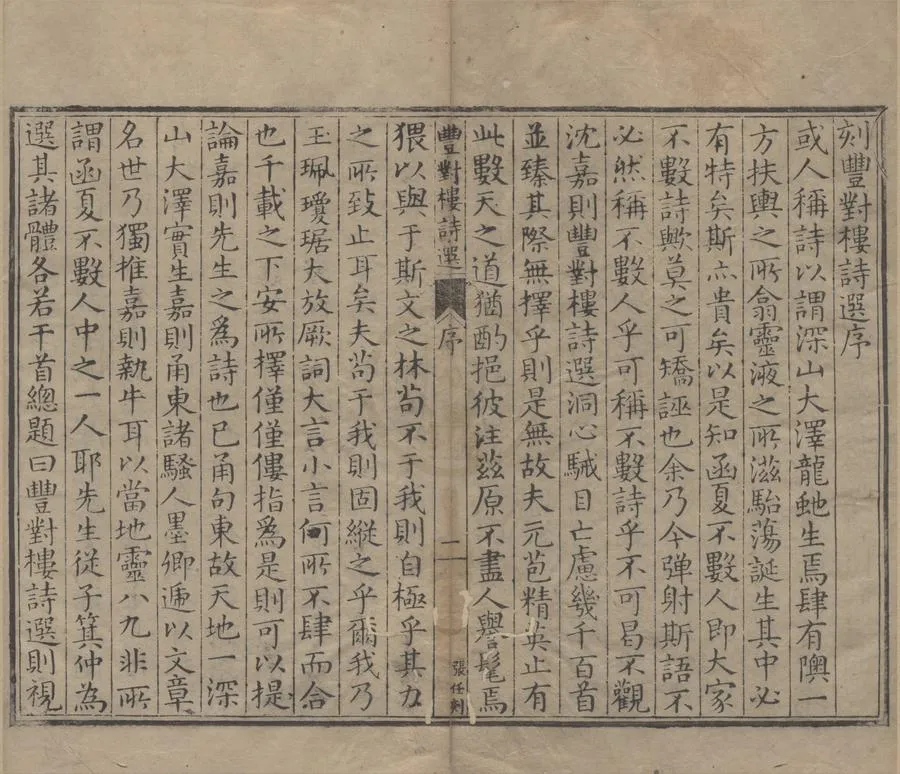 刻豐對樓詩選序
或人稱詩以謂深山大澤龍虵生焉肆有隩一
方扶輿之所翕靈液之所滋駘蕩誕生其中必
有特矣斯亦貴矣以是知函夏不數人即大家
不數詩歟莫之可矯誣也余乃今彈射斯語不
必然稱不數人乎可稱不數詩乎不可曷不觀
沈嘉則豐對樓詩選洞心駴目亡慮幾千百首
並臻其際無擇乎則是無故夫元苞精英止有
此數天之道猶酌挹彼注茲原不盡人譽髦焉
豐對樓詩選
序
二
張任刻
猥以與于斯文之林茍不于我則自極乎其力
之所致止耳矣夫茍于我則固縱之乎爾我乃
玉珮瓊琚大放厥詞大言小言何所不肆而合
也千載之下安所擇僅僅僂指為是則可以提
論嘉則先生之為詩也已甬句東故天地一深
山大澤實生嘉則甬東諸騷人墨卿遞以文章
名世乃獨推嘉則執牛耳以當地靈八九非所
謂函夏不數人中之一人耶先生從子箕仲為
選其諸體各若干首總題曰豐對樓詩選則視